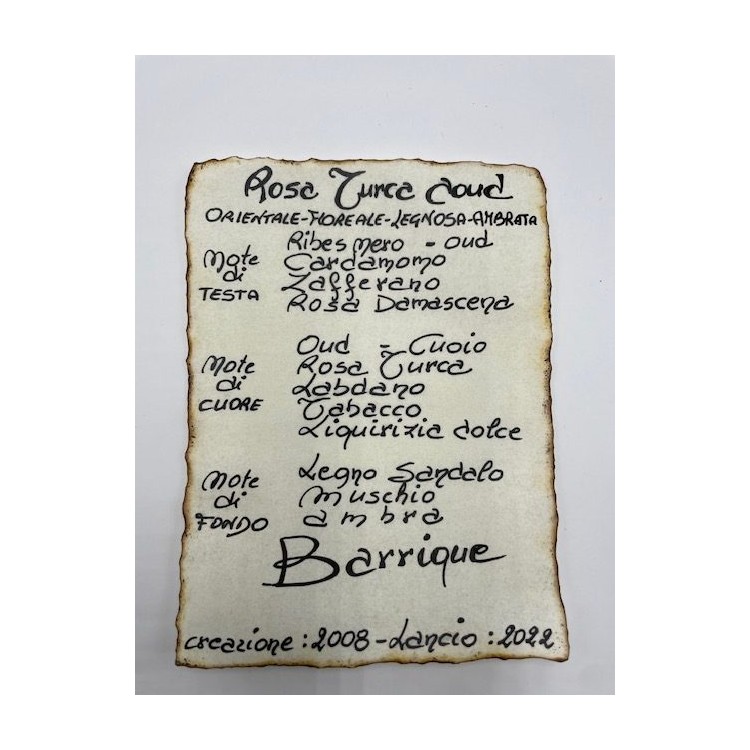 Rosa Turca Aoud
ORIENTALE-FLOREALE-LEGNOSA-AMBRATA
Note
di
TESTA
Ribes nero - oud
Cardamomo
Zafferano
Rosa Damascena
Note
di
CUORE
Oud - Cuoio
Rosa Turca
Labdano
Tabacco
Liquirizia dolce
Note
di
FONDO
Legno Sandalo
Muschio
ambra
Barrique
creazione : 2008 - Lancio : 2022